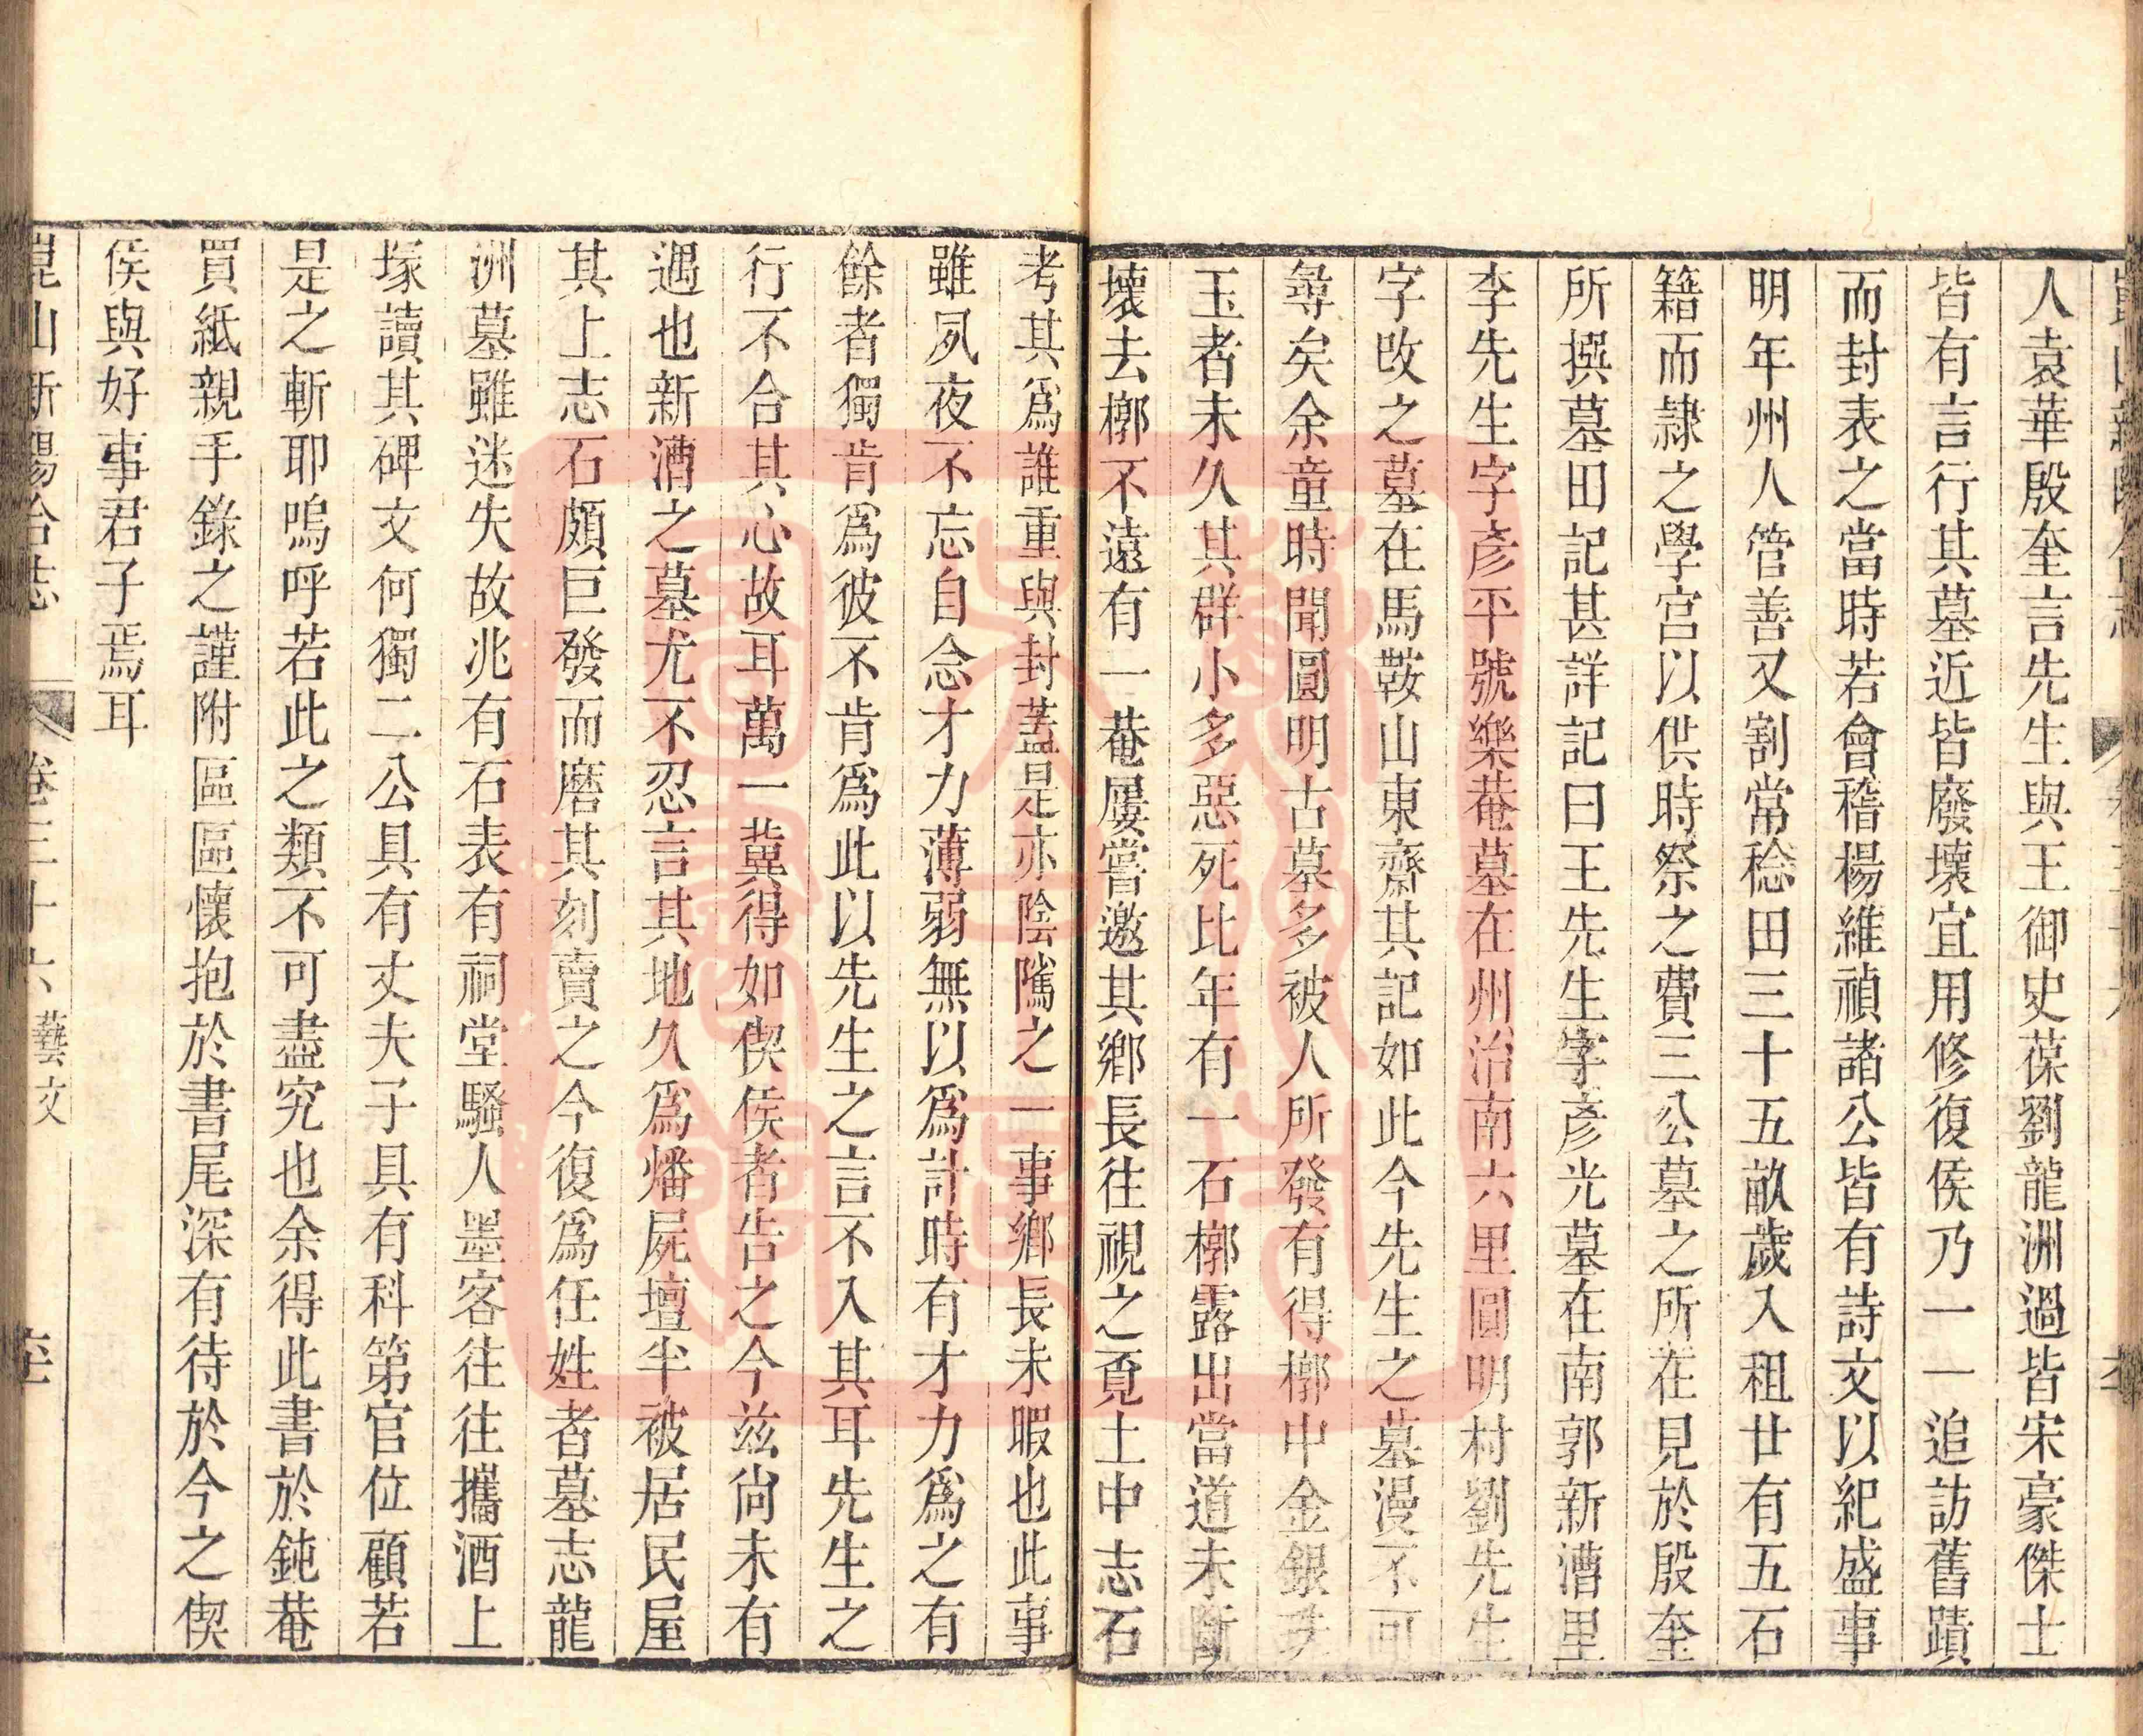 人袁華殷奎言先生與王御史葆劉龍洲過皆宋豪傑士
皆有言行其墓近皆廢壞宜用修復侯乃一一追訪舊蹟
而封表之當時若會稽楊維禎諸公皆有詩文以紀盛事
明年州人管善又割常稔田三十五畝歲入租廿有五石
籍而隷之學宮以供時祭之費三公墓之所在見於殷奎
所撰墓田記甚詳記曰王先生字彥光墓在南郭新漕里
李先生字彥平號樂菴墓在州治南六里圓明村劉先生
字改之墓在馬鞍山東齋其記如此今先生之墓漫不可
尋矣余童時聞圓明古墓多被人所發有得槨中金銀
玉者未久其群小多惡死比年有一石槨露出當道未
壞去槨不遠有一菴屢嘗邀其鄉長往視之覔土中志石
考其爲誰重與封蓋是亦陰隲之一事鄉長未暇也此事
雖夙夜不忘自念才力薄弱無以爲計時有才力爲之有
餘者獨肯爲彼不肯爲此以先生之言不入其耳先生之
行不合其心故耳萬一冀得如偰侯者告之今兹尙未有
遇也新漕之墓尤不忍言其地久爲燔屍壇半被居民屋
其上志石頗巨發而磨其刻賣之今復爲任姓者墓志龍
洲墓雖迷失故兆有石表有祠堂騷人墨客往往攜酒上
塚讀其碑文何獨二公具有丈夫子具有科第官位顧若
是之斬耶嗚呼若此之類不可盡究也余得此書於鈍菴
買紙親手錄之謹附區區懷抱於書尾深有待於今之偰
侯與好事君子焉耳
崑山新陽合志 卷三十六 藝文